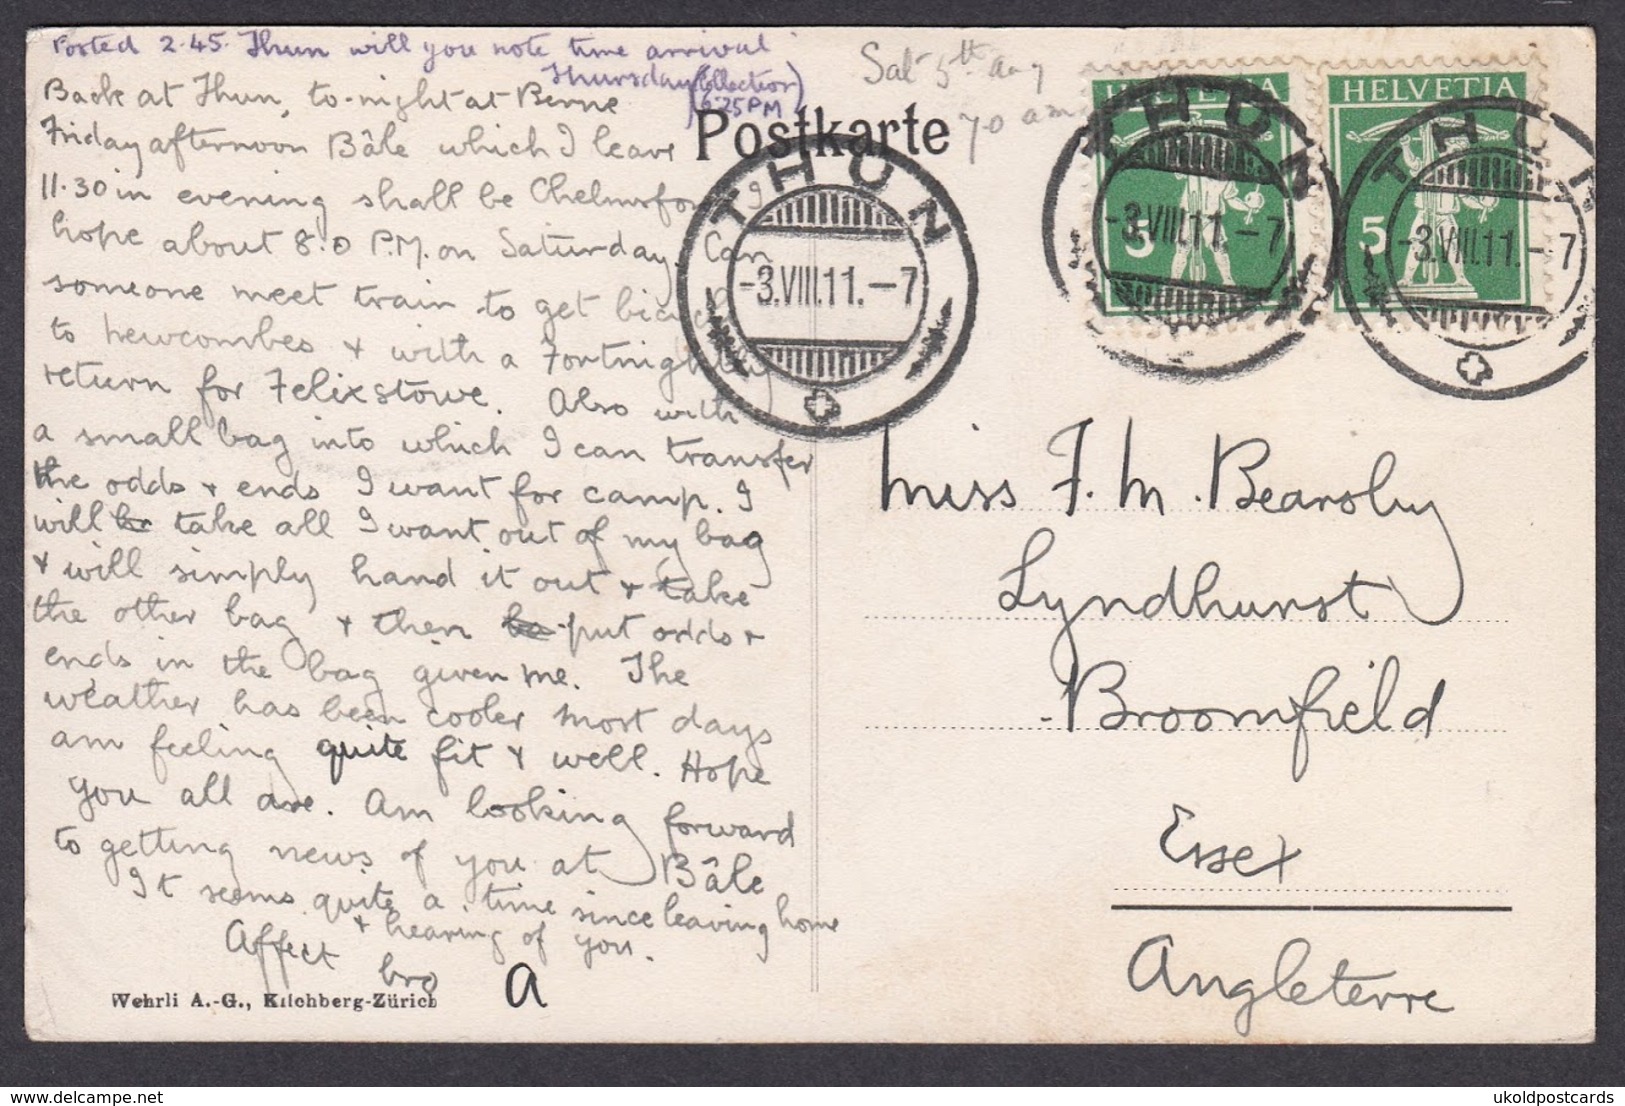 Posted 2.45. Thun will you note time arrival
Thursday (collection 6.25 PM)
Sat 5th Aug
7.0 am
Back at Thun, to-night at Berne
Friday afternoon Bâle which I leave
11.30 in evening shall be Chelmsford I
hope about 8.0 P.M. on Saturday. Can
someone meet train to get bicycle
to Newcombes & with a Fortnightly
return for Felixstowe. Also with
a small bag into which I can transfer
the odds & ends I want for camp. I
will take all I want out of my bag
& will simply hand it out & take
the other bag & then put odds &
ends in the bag given me. The
weather has been cooler most days
am feeling quite fit & well. Hope
you all are. Am looking forward
to getting news of you at Bâle
It seems quite a time since leaving home
& hearing of you.
Affect bro A
Wehrli A.-G., Kilchberg-Zürich
Postkarte
THUN
-3.VIII.11.-7
HELVETIA
5
THUN
-3.VIII.11.-7
HELVETIA
5
THUN
-3.VIII.11.-7
Miss F. M. Bearsby
Lyndhurst
Broomfield
Essex
Angleterre
delcampe.net
ukoldpostcards